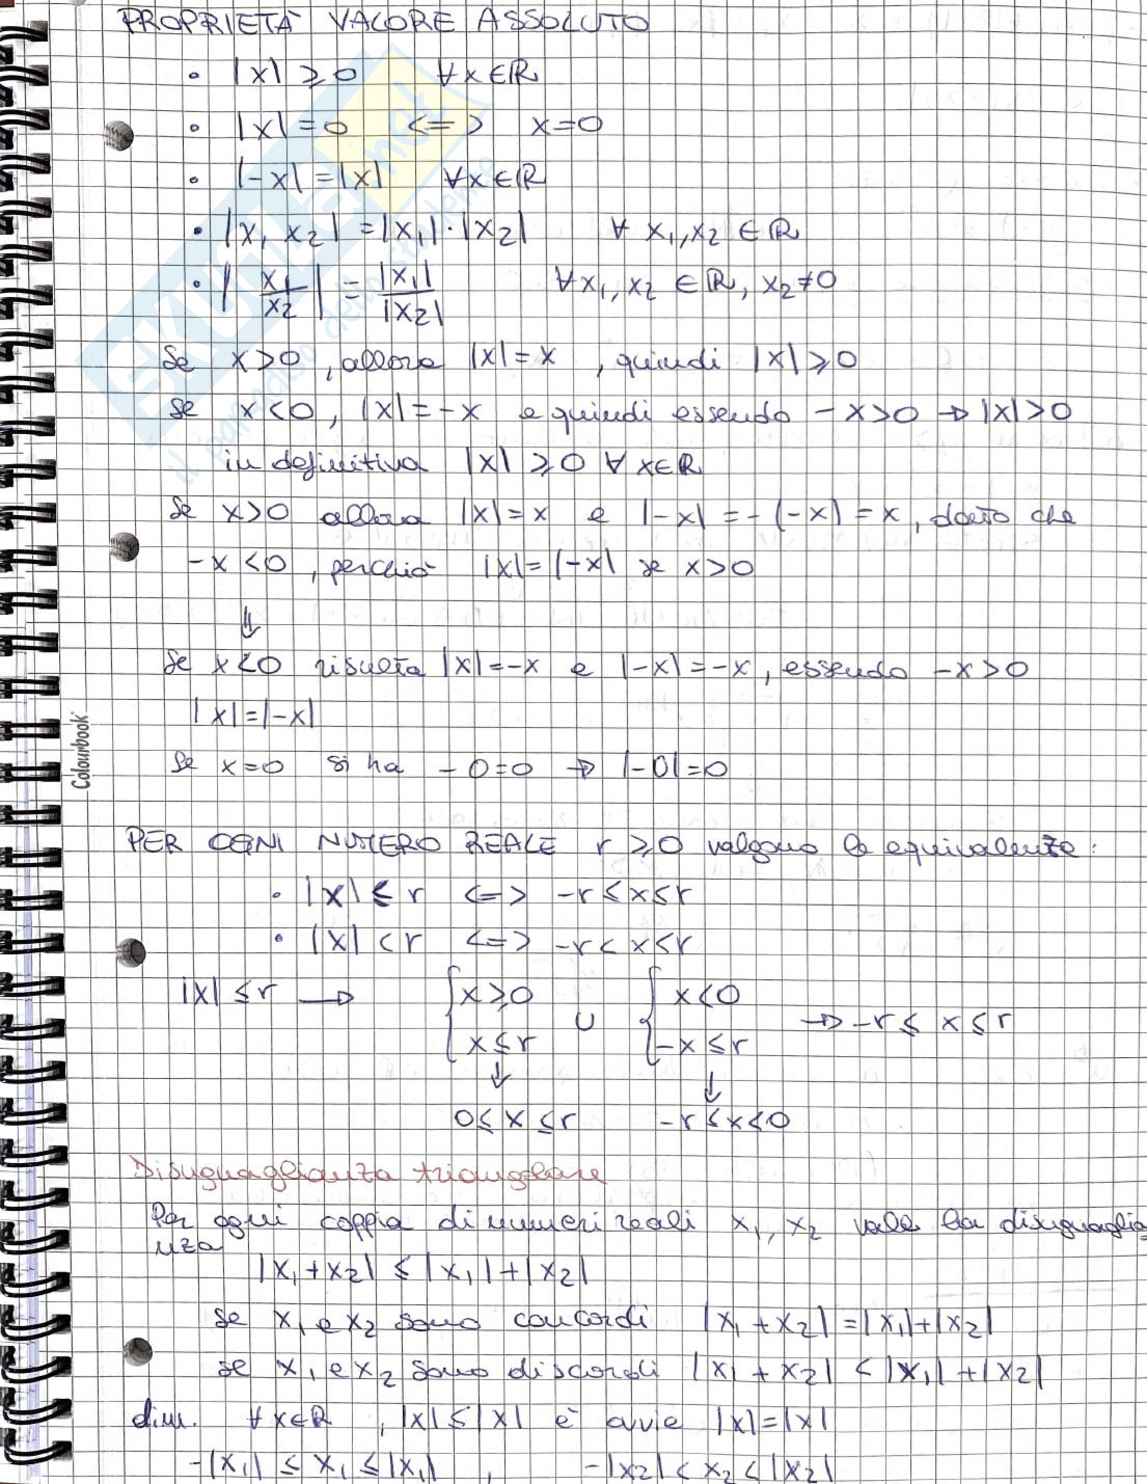 PROPRIETÀ VALORE ASSOLUTO
• |x| ⩾ 0 ∀x∈ℝ
• |x| = 0 <=> x=0
• |-x| = |x| ∀x∈ℝ
• |x₁ x₂| = |x₁|·|x₂| ∀ x₁,x₂ ∈ ℝ
• |x₁/x₂| = |x₁|/|x₂| ∀x₁,x₂ ∈ℝ, x₂≠0
Se x>0, allora |x|=x, quindi |x|⩾0
Se x<0, |x|=-x e quindi essendo -x>0 → |x|>0
in definitiva |x| ⩾ 0 ∀ x∈ℝ
Se x>0 allora |x|=x e |-x| = -(-x) = x, dato che
-x<0, perciò |x|=|-x| se x>0
⇓
Se x<0 risulta |x|=-x e |-x|=-x, essendo -x>0
|x|=|-x|
Se x=0 si ha -0=0 → |-0|=0
Colourbook
PER OGNI NUMERO REALE r⩾0 valgono le equivalenze:
• |x| ⩽ r <=> -r⩽x⩽r
• |x| < r <=> -r< x<r
|x| ⩽ r → { x⩾0 ∪ { x<0 → -r⩽ x ⩽r
x⩽r -x⩽r
↓ ↓
0⩽ x ⩽r -r⩽x<0
Disuguaglianza triangolare
Per ogni coppia di numeri reali x₁, x₂ vale la disuguaglia
nza
|x₁+x₂| ⩽ |x₁|+|x₂|
se x₁ e x₂ sono concordi |x₁+x₂| = |x₁|+|x₂|
se x₁ e x₂ sono discordi |x₁+x₂| < |x₁|+|x₂|
dim. ∀x∈ℝ, |x|⩽|x| è ovvio |x|=|x|
-|x₁| ⩽ x₁ ⩽ |x₁| , -|x₂| < x₂ < |x₂|